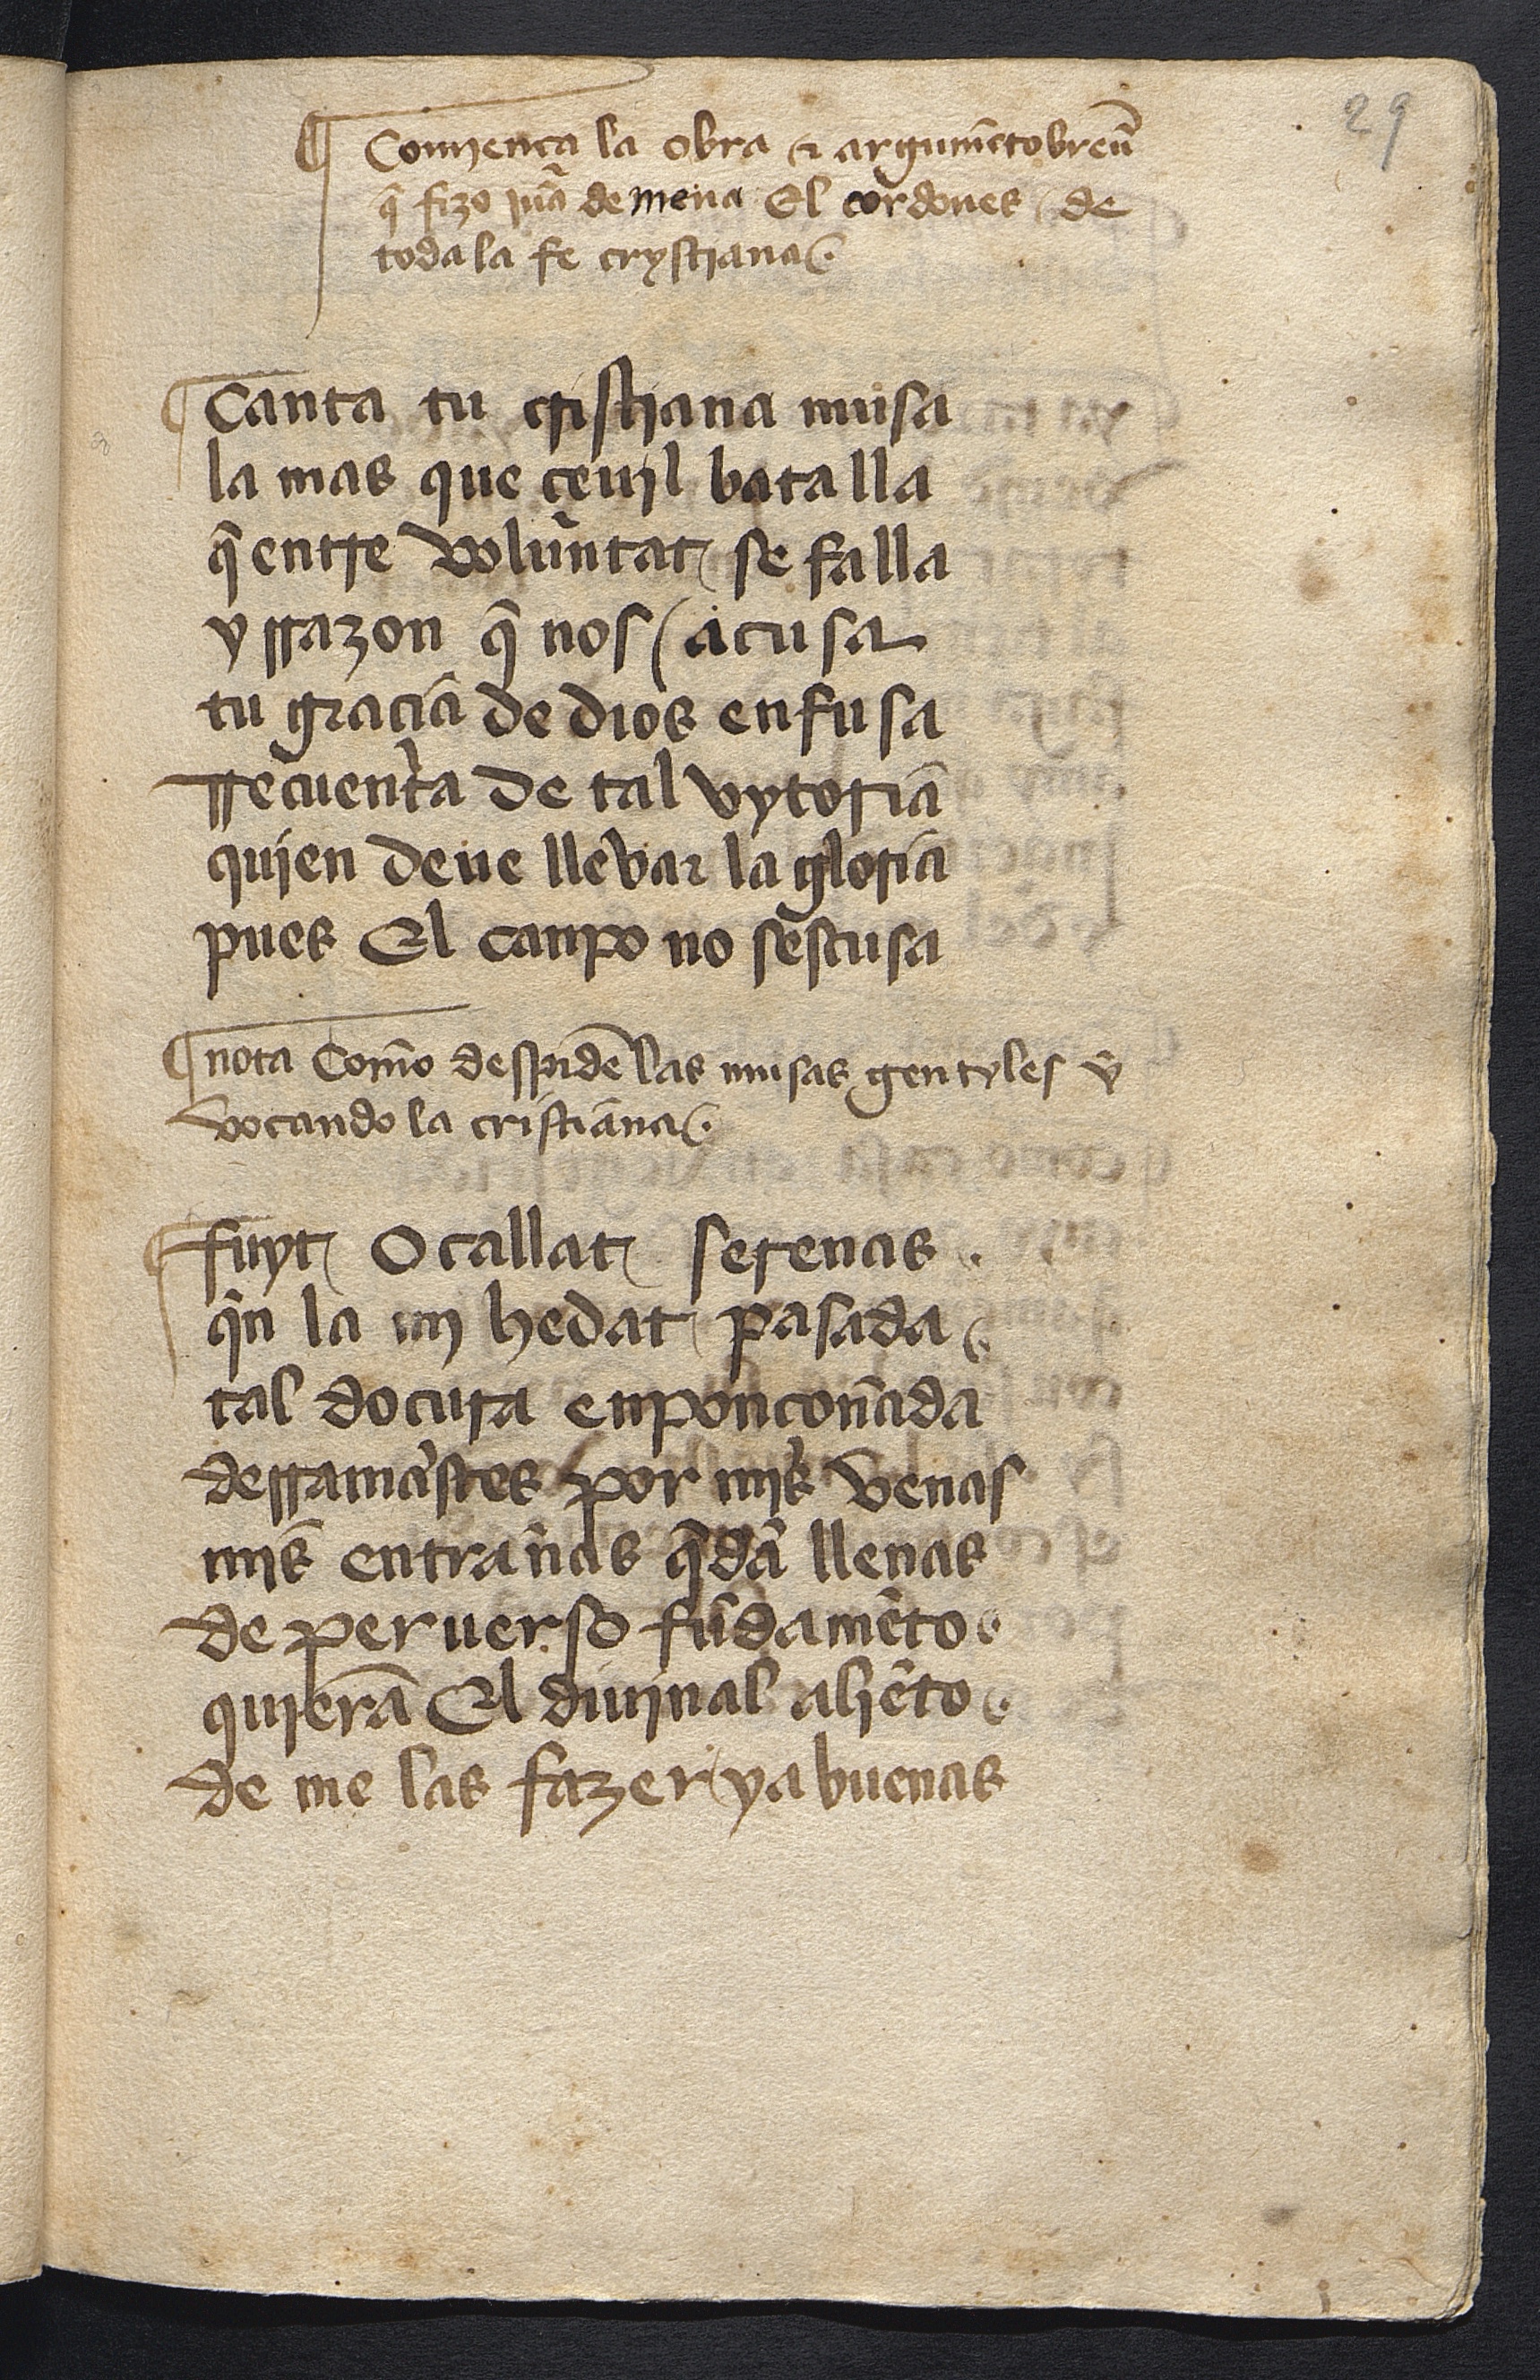 29
¶ Comiença la obra & argumẽto breũ
q̃ fizo juã de mena El cordoues de
toda la fe crystiana.
¶ Canta tu cristiana musa
la mas que çeujl batalla
q̃ entre voluntat se falla
y rrazon q̃ nos acusa
tu gracia de dios enfusa
rrecuenta de tal vytoria
qujen deue lleuar la gloria
pues El canpo no sescusa
¶ nota Como despidẽ las musas gentyles ỹ
vocando la cristiana.
¶ fuyt O callat serenas.
q̃n la mj hedat pasada.
tal doçura enponçoñada
derramastes por mjs venas
mjs entrañas q̃dã llenas
de peruerso fũdamẽto.
quierã El diujnal aliẽto.
de me las fazer ya buenas